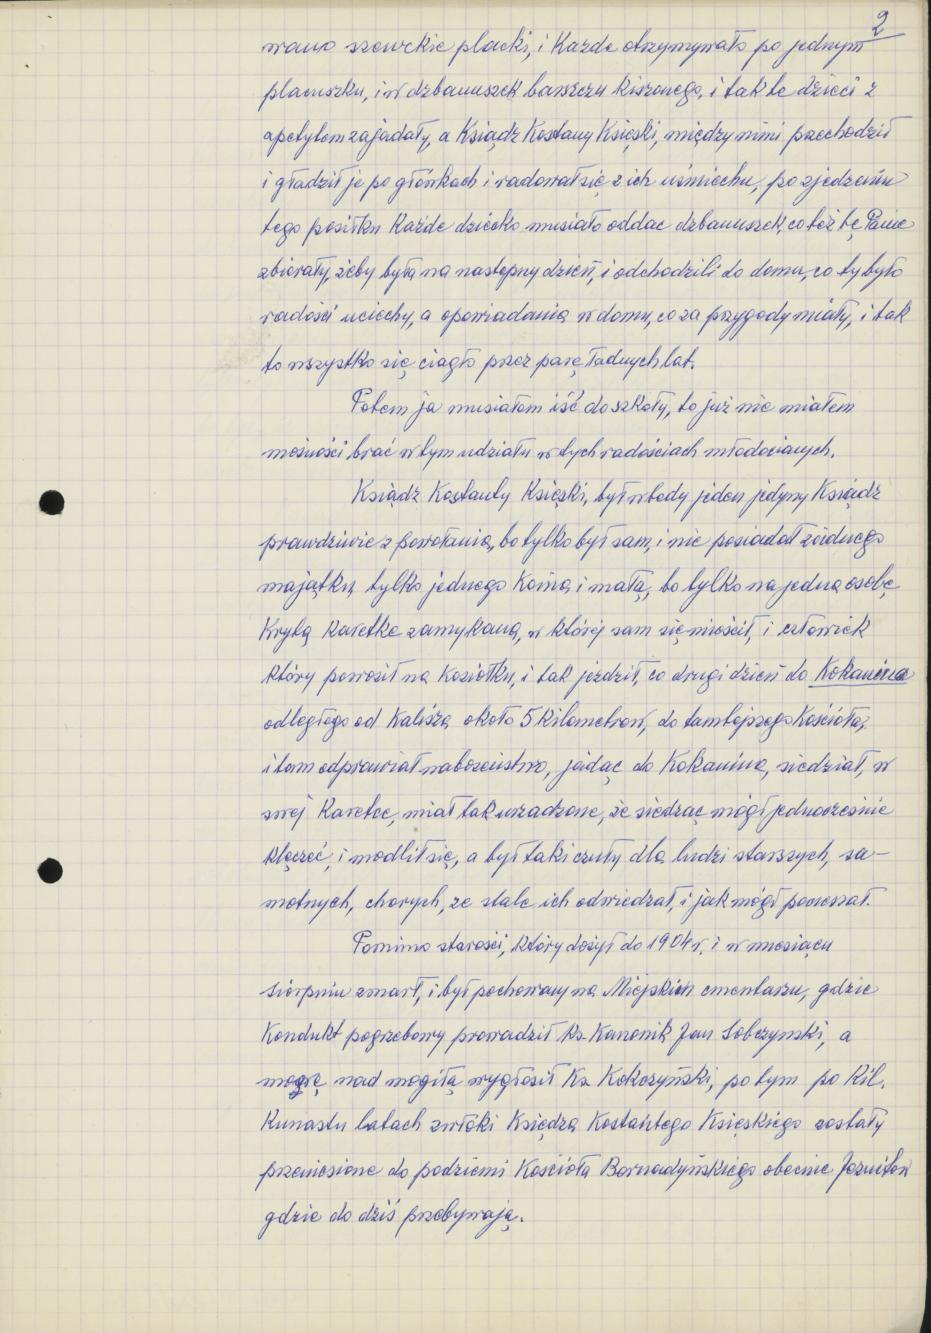 2
wano szewckie placki, i Każde otrzymywało po jednym
placuszku, i w dzbanuszek barszczu kiszonego, i tak te dzieci z
apetytem zajadały, a Ksiądz Kostanty Księski, między nimi przechodził
i gładził je po główkach i radował się z ich uśmiechu, po zjedzeniu
tego posiłku Każde dziecko musiało oddac dzbanuszek, co też te Panie
zbierały, żeby była na nastepny dzień, i odchodzili do domu, co ty było
radości uciechy, a opowiadania w domu, co za przygody miały, i tak
to wszystko się ciagło przez parę ładnych lat.
Potem ja musiałem iść do szkoły, to już nie miałem
możności brać w tym udziału w tych radościach młodocianych.
Ksiądz Kostanty Księski, był wtedy jeden jedyny Ksiądz
prawdziwie z powołania, bo tylko był sam, i nie posiadał żadnego
majątku, tylko jednego Konia i małą, bo tylko na jedną osobę
Krytą Karetke zamykaną, w której sam się mieścił, i człowiek
który powoził na Koziołku, i tak jeździł, co drugi dzień do Kokanina
odległego od Kalisza około 5 Kilometrów, do tamtejszego Kościoła,
i tam odprawiał nabożeństwo, jadąc do Kokanina, siedział, w
swej Karetce, miał tak urzadzone, że siedząc mógł jednocześnie
klęczeć, i modlił się, a był taki czuły dla ludzi starszych, sa-
motnych, chorych, że stale ich odwiedzał, i jak mógł pomagał.
Pomimo starości, który dożył do 1904 r. i w miesiącu
sierpniu zmarł, i był pochowany na Miejskim cmentarzu, gdzie
Kondukt pogrzebowy prowadził Ks. Kanonik Jan Sobczyński, a
mowę nad mogiłą wygłosił Ks. Kokczyński, po tym po Kil.
Kunastu latach zwłoki Księdza Kostantego Księskiego zostały
przeniesione do podziemi Kościoła Bernadyńskiego obecnie Jezuitów
gdzie do dziś przebywają.